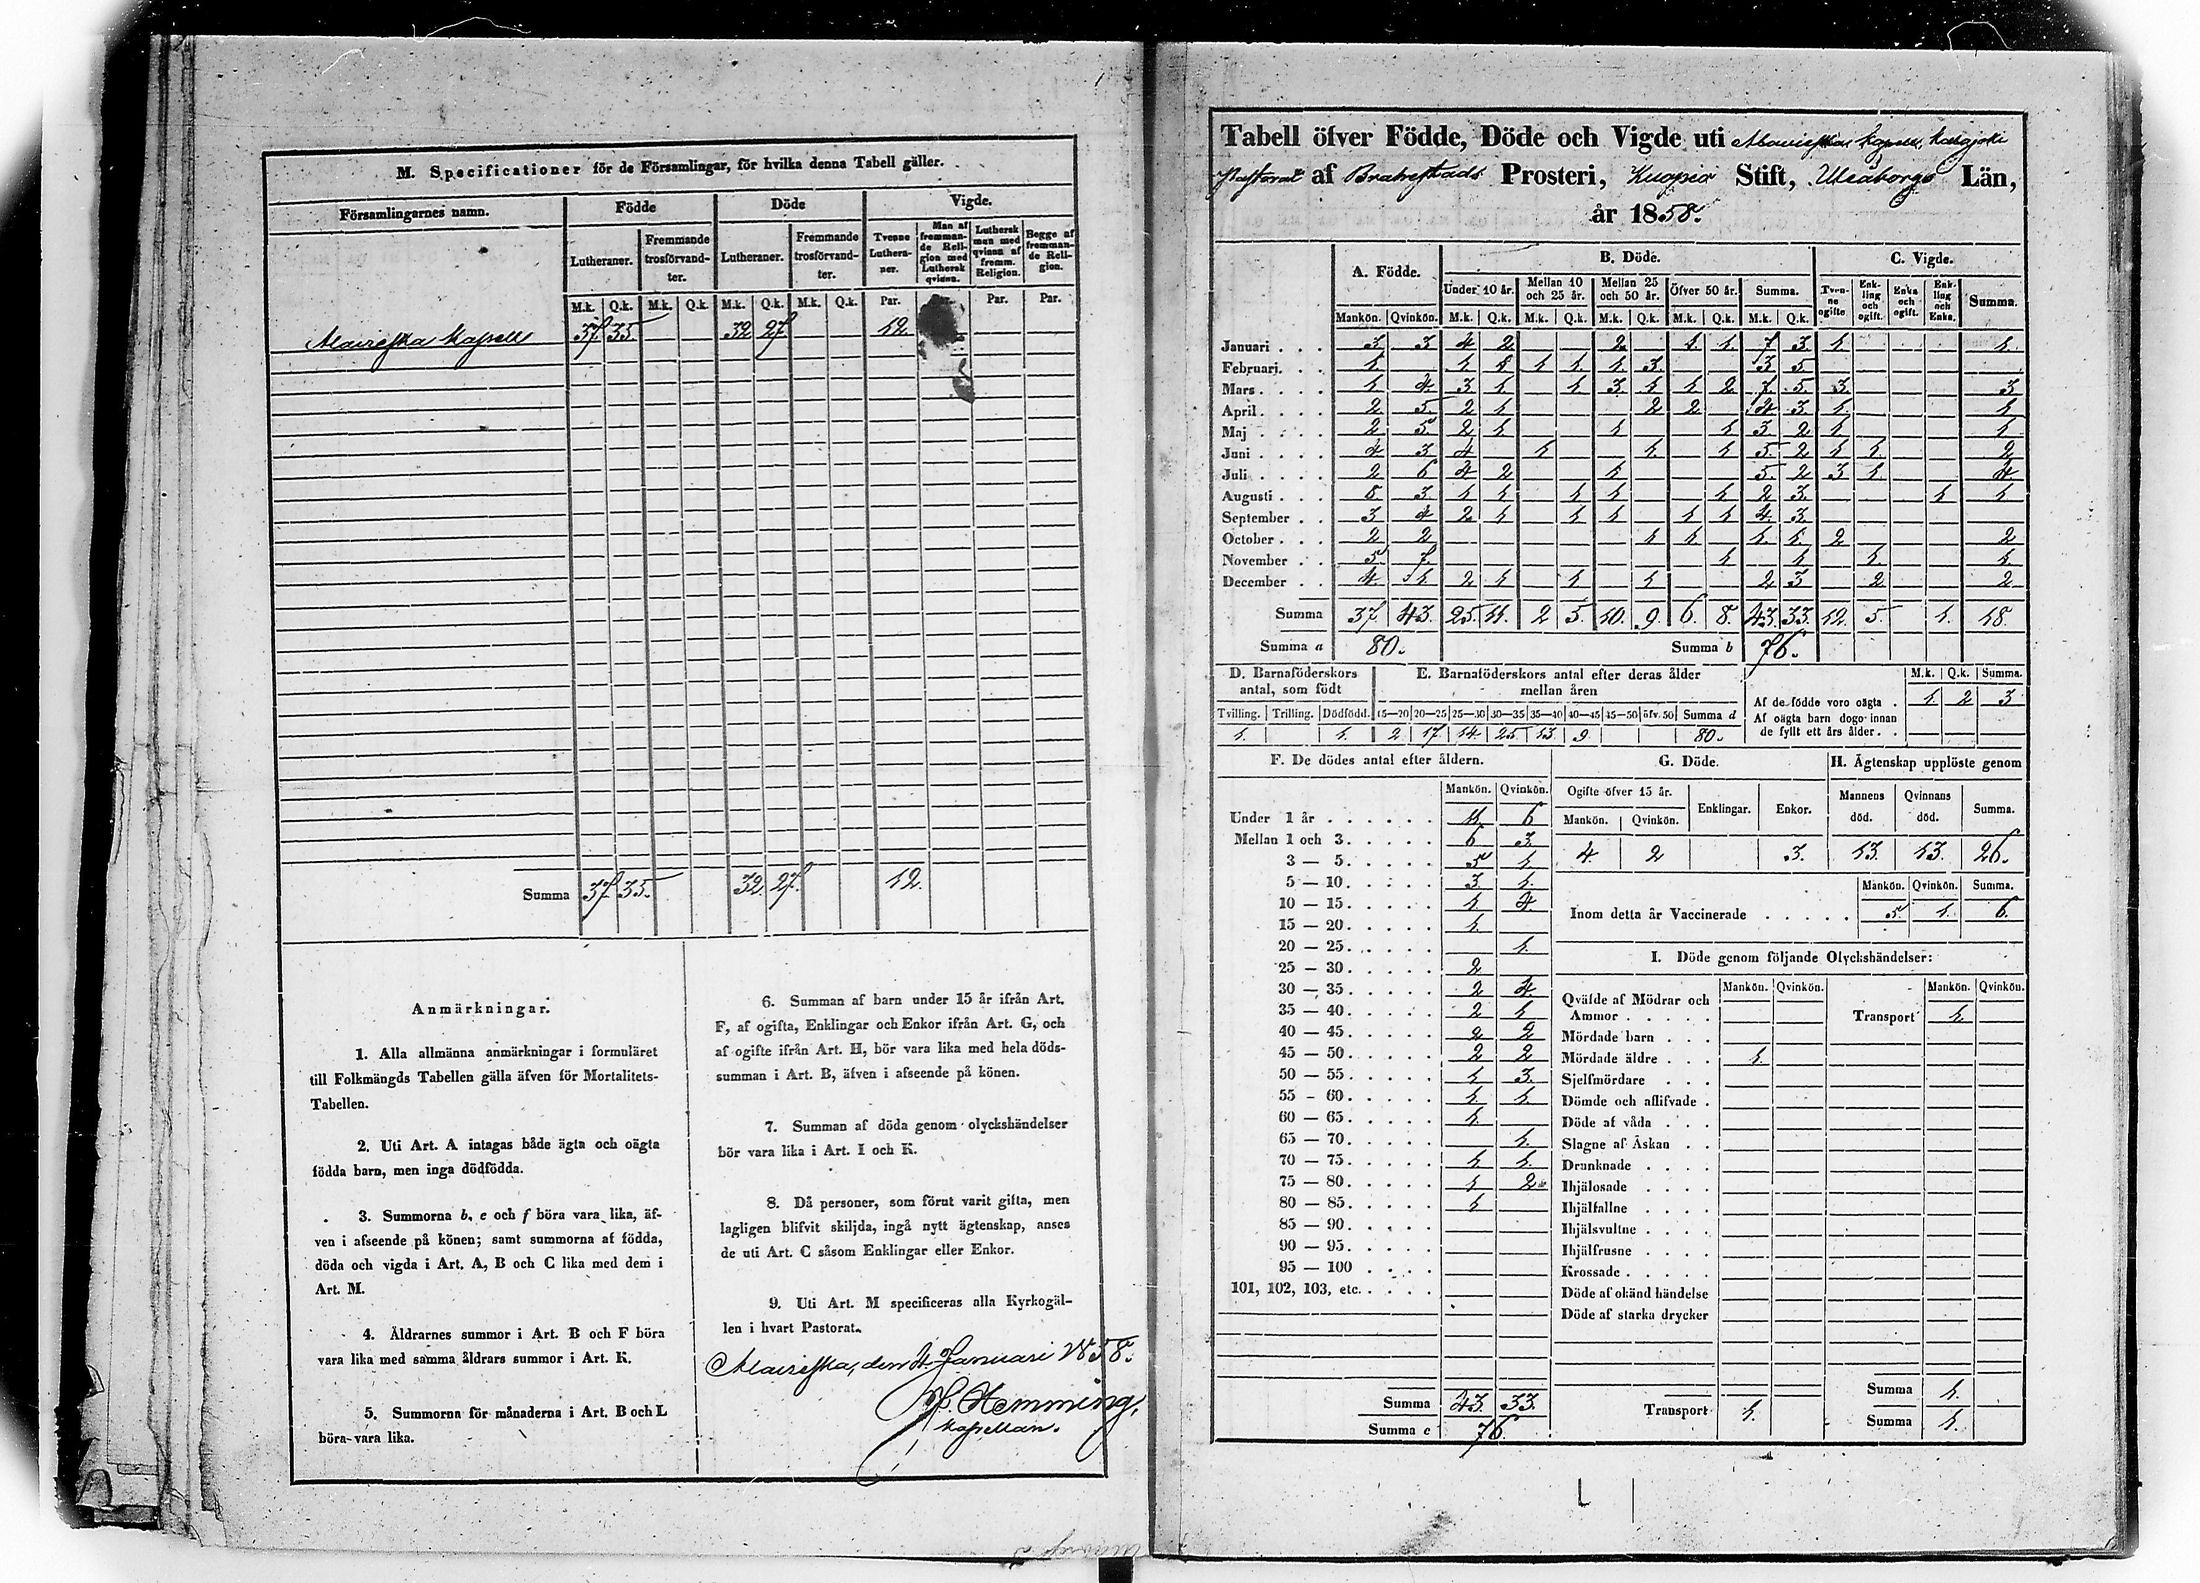 M. Specificationer för de Församlingar, för hvilka denna Tabell gäller.
Församlingarnes namn. Födde Döde Vigde.
Lutheraner. Fremmande trosförvandter. Lutheraner. Fremmande trosförvandter. Tvenne Lutheraner. Man af fremmande Religion med Luthersk qvinna. Luthersk man med qvinna af fremm. Religion. Begge af fremmande Religion.
M.k. Q.k. M.k. Q.k. M.k. Q.k. M.k. Q.k. Par. Par. Par.
Alavieska Kapell 37. 35. 32 27. 12.
Summa 37. 35. 32. 27. 12.
Anmärkningar.
1. Alla allmänna anmärkningar i formuläret
till Folkmängds Tabellen gälla äfven för Mortalitets-
Tabellen.
2. Uti Art. A intagas både ägta och oägta
födda barn, men inga dödfödda.
3. Summorna b, e och f böra vara lika, äf-
ven i afseende på könen; samt summorna af födda,
döda och vigda i Art. A, B och C lika med dem i
Art. M.
4. Åldrarnes summor i Art. B och F böra
vara lika med samma åldrars summor i Art. K.
5. Summorna för månaderna i Art. B och L
böra vara lika.
6. Summan af barn under 15 år ifrån Art.
F, af ogifta, Enklingar och Enkor ifrån Art. G, och
af ogifte ifrån Art. H, bör vara lika med hela döds-
summan i Art. B, äfven i afseende på könen.
7. Summan af döda genom olyckshändelser
bör vara lika i Art. I och K.
8. Då personer, som förut varit gifta, men
lagligen blifvit skiljda, ingå nytt ägtenskap, anses
de uti Art. C såsom Enklingar eller Enkor.
9. Uti Art. M specificeras alla Kyrkogäl-
len i hvart Pastorat.
Alavieska, den Januari 1858.
Hemming,
Kapellan.
Tabell öfver Födde, Döde och Vigde uti Alavieska Kapell, Kalajoki
Pastorat af Brahestads Prosteri, Kuopio Stift, Uleåborgs Län,
år 1858.
A. Födde. B. Döde. C. Vigde.
Under 10 år. Mellan 10 och 25 år. Mellan 25 och 50 år. Öfver 50 år. Summa. Tvenne ogifte. Enkling och ogift. Enka och ogift. Enkling och Enka. Summa.
Mankön. Qvinkön. M.k. Q.k. M.k. Q.k. M.k. Q.k. M.k. Q.k. M.k. Q.k.
Januari 3 3 4 2 2 1. 1. 7 3 1 1.
Februari 1. 1 1 1 1. 1. 3 3 5
Mars 1 4. 3 1 1 3. 1 1 2 7. 5. 3 3
April 2 5. 2 1 2 2 4 3 1. 1
Maj 2 5. 2 1 1 1 3 2 1 1
Juni 4 3 4 1 1. 1 5. 2 1 1. 2
Juli 2 6 4 2 1 5. 2 3 1 4
Augusti 8. 3. 1 1 1 1 1 2 3 1 1
September 3 4 2 1 1 1 1 1 4. 3
October 2 2 1 1. 1. 1. 2 2
November 5. 7. 1 1 1. 1
December 4 1 2 1 1 1 2 3 2 2
Summa 37. 43. 25. 11. 2 5. 10. 9. 6. 8. 43. 33. 12. 5. 1. 18.
Summa a 80. Summa b 76.
D. Barnaföderskors antal, som födt
E. Barnaföderskors antal efter deras ålder mellan åren
Tvilling. Trilling. Dödfödd. 15—20 20—25 25—30 30—35 35—40 40—45 45—50 öfv. 50 Summa d
1. 1. 2 17 14. 25. 13. 9. 80.
M.k. Q.k. Summa.
Af de födde voro oägta . 1. 2 3
Af oägta barn dogo innan
de fyllt ett års ålder . .
F. De dödes antal efter åldern.
Mankön. Qvinkön.
Under 1 år 11. 6
Mellan 1 och 3. 6 3.
3 — 5. 5 1.
5 — 10. 3 1.
10 — 15. 1. 4.
15 — 20. 1.
20 — 25. 1.
25 — 30. 2
30 — 35. 2 4.
35 — 40. 2 1
40 — 45. 2 2
45 — 50. 2 2
50 — 55. 1 3.
55 - 60. 1. 1.
60 — 65. 1.
65 — 70. 1.
70 — 75. 1 1.
75 — 80. 1 2
80 — 85. 1
85 — 90.
90 — 95.
95 — 100
101, 102, 103, etc.
Summa 43. 33.
Summa c 76.
G. Döde.
Ogifte öfver 15 år. Enklingar. Enkor.
Mankön. Qvinkön.
4. 2 3.
H. Ägtenskap upplöste genom
Mannens död. Qvinnans död. Summa.
13. 13. 26.
Mankön. Qvinkön. Summa.
Inom detta år Vaccinerade 5. 1. 6.
I. Döde genom följande Olyckshändelser:
Mankön. Qvinkön. Mankön. Qvinkön.
Qväfde af Mödrar och
Ammor Transport 1.
Mördade barn
Mördade äldre 1.
Sjelfmördare
Dömde och aflifvade
Döde af våda
Slagne af Åskan
Drunknade
Ihjälosade
Ihjälfallne
Ihjälsvultne
Ihjälfrusne
Krossade
Döde af okänd händelse
Döde af starka drycker
Summa 1.
Transport 1. Summa 1.